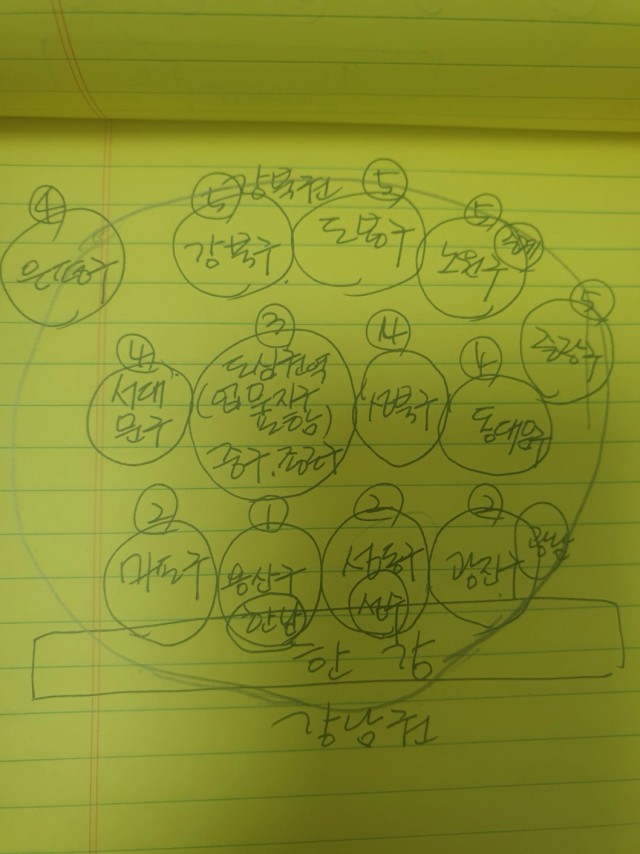 강북권
④ ⑤ ⑤ ⑤
은평구 강북구 도봉구 노원구
⑤
중랑구
④ ③ ④ ④
서대
문구
도심권역
(업물지구
중구.종로구
성북구
동대문구
② ① ② ②
마포구 용산구 성동구 광진구 광남
한남 성수
한강
강남권